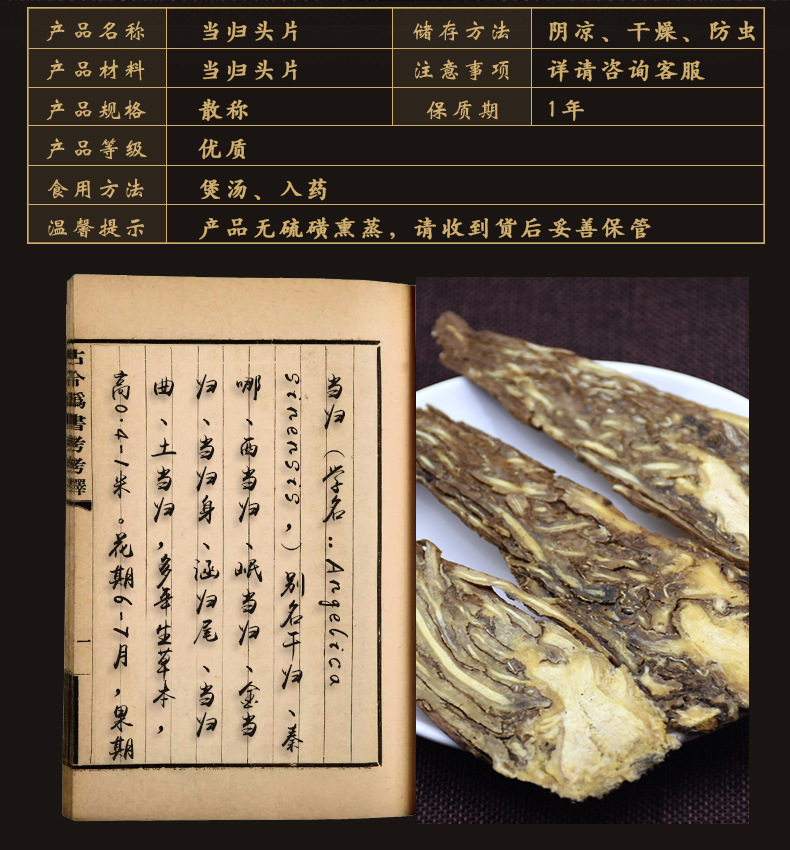 产品名称 当归头片 储存方法 阴凉、干燥、防虫
产品材料 当归头片 注意事项 详请咨询客服
产品规格 散称 保质期 1年
产品等级 优质
食用方法 煲汤、入药
温馨提示 产品无硫磺熏蒸，请收到货后妥善保管
当归（学名：Angelica
sinensis，）别名干归、秦
哪、西当归、岷当归、金当
归、当归身、涵归尾、当归
曲、土当归，多年生草本，
高0.4-1米。花期6-7月，果期
古今偽書考考釋
一